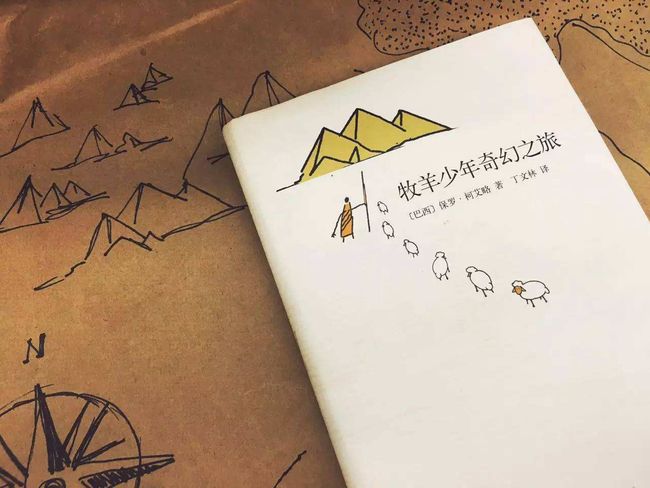 牧羊少年奇幻之旅
〔巴西〕保罗·柯艾略 著 丁文林 译
N